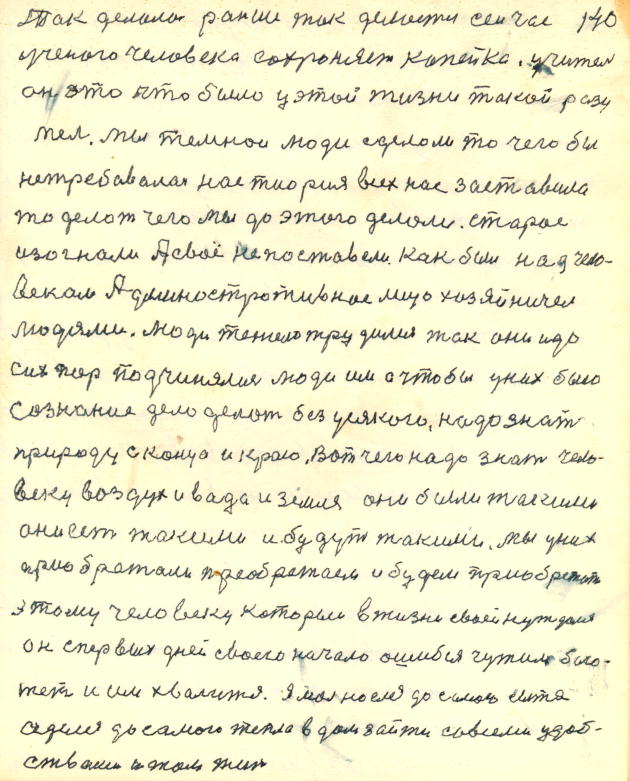 Так делалося раньше так делается сейчас 140
ученого человека сохроняет копейка. учител
он это что было у этой жизни такой разу
мел. мы темнои люди сделали то чего бы
нетребавалося нас тиория всех нас заставила
то делат чего мы до этого делали. старое
изогнали А своё непоставели. Как были над чело-
веком Администротивное лицо хозяйничел
людями. люди тежело трудилися так они и до
сих пор подчинялися люди им а чтобы у них было
сознание дело делат без усякого, надо знат
природу с конца и краю. Вот чего надо знат чело-
веку воздух и вада и земля они были такими
они ест такими и будут такими. мы у них
приобретали преобретаем и будем приобретат
этому человеку которые в жизни своей нуждался
он с первых дней своего начало ошибся чужим бого-
тет и им хвалится. Я молнося до самого
седеля до самого тепла в дом зайти совсеми удоб-
ствами и там жит